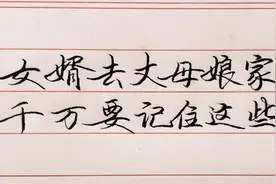 女婿去丈母娘家
千万要记住这些